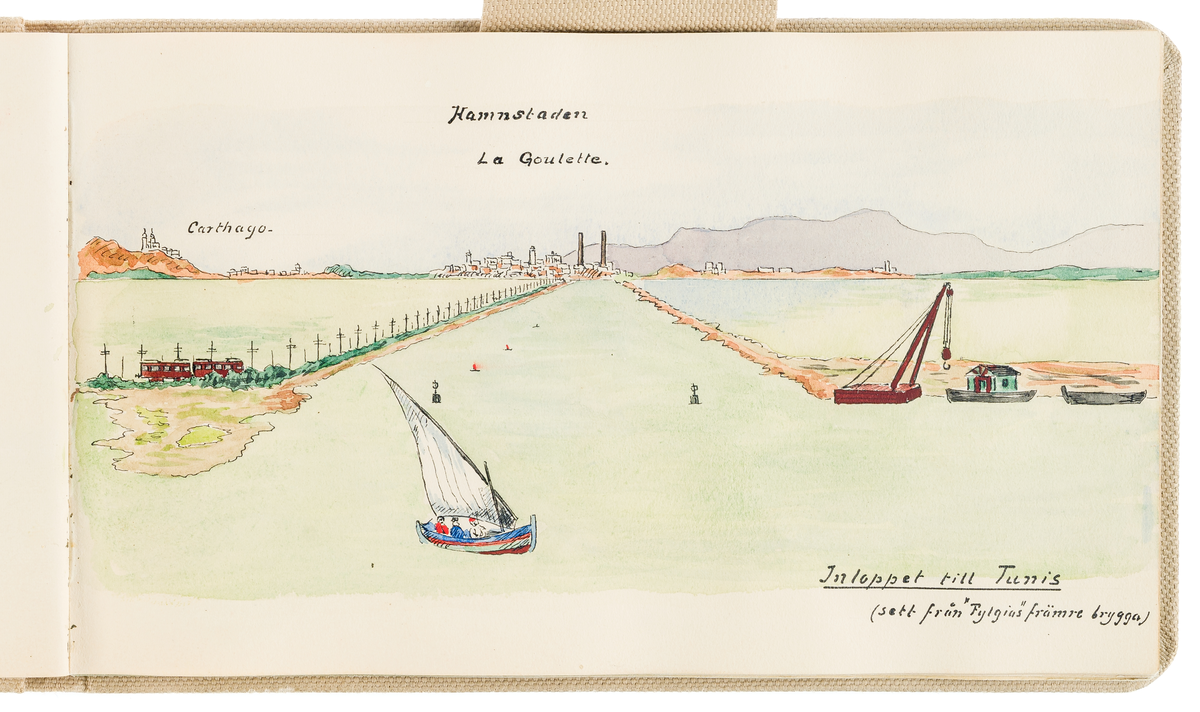 Hamnstaden
La Goulette.
Carthago-
Inloppet till Tunis
(sett från "Fylgias" främre brygga)